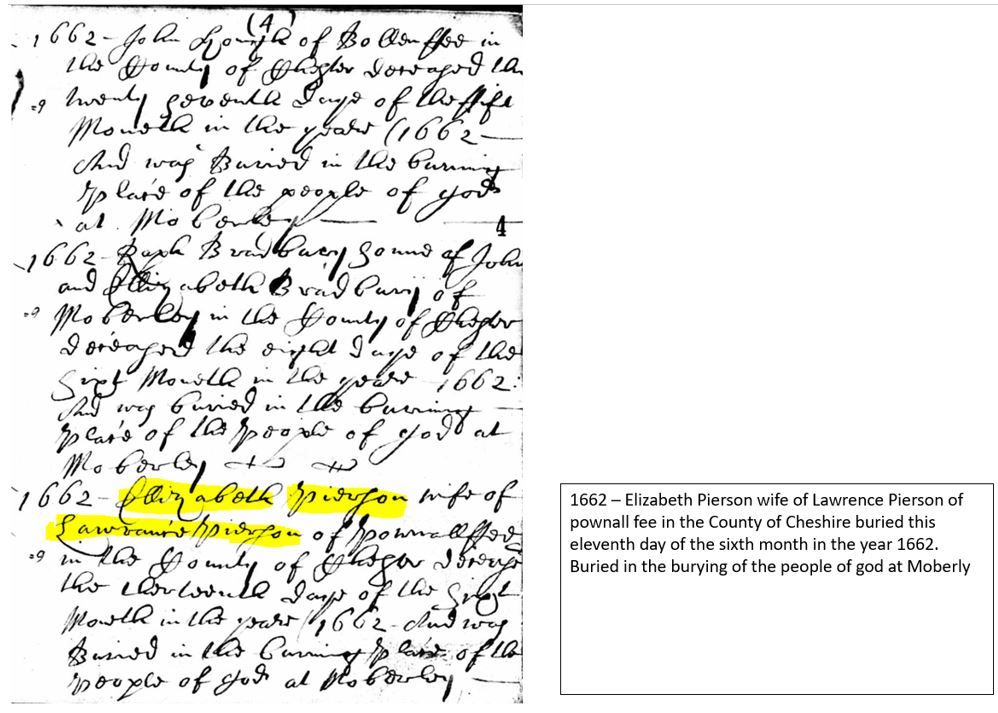 (4)
1662 - John Hough of Bollen ffee in
the County of Chester deceased the
twenty seventh daye of the fift
Moneth in the yeare (1662 —
And was Buried in the burning
place of the people of god
at Moberley
4
1662 - Raph Bradbury sonne of John
and Ellizabeth Bradbury of
Moberley in the County of Chester
deceased the eight daye of the
Sixt Moneth in the yeare 1662:
And was buried in the burning
place of the people of god at
Moberley
1662 - Ellizabeth Pierson wife of
Lawrance Pierson of Pownall ffee
in the County of Chester decease
the therteenth daye of the Sixt
Moneth in the yeare (1662 - And was
Buried in the burning place of the
people of god at Moberley
1662 – Elizabeth Pierson wife of Lawrence Pierson of
pownall fee in the County of Cheshire buried this
eleventh day of the sixth month in the year 1662.
Buried in the burying of the people of god at Moberly